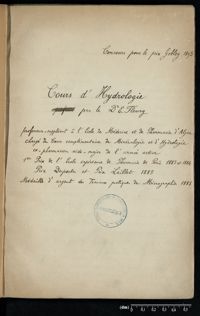 Concours pour le prix Gobley 1893
Cours d'Hydrologie
par le Dr E. Fleury
professeur suppléant à l'École de Médecine et de Pharmacie d'Alger
chargé du Cours complémentaire de Minéralogie et d'Hydrologie
ex-pharmacien aide-major de l'armée active
1er Prix de l'École supérieure de Pharmacie de Paris 1883 et 1884
Prix Desportes et Prix Laillet 1885
Médaille d'argent des Travaux pratiques de Micrographie 1881